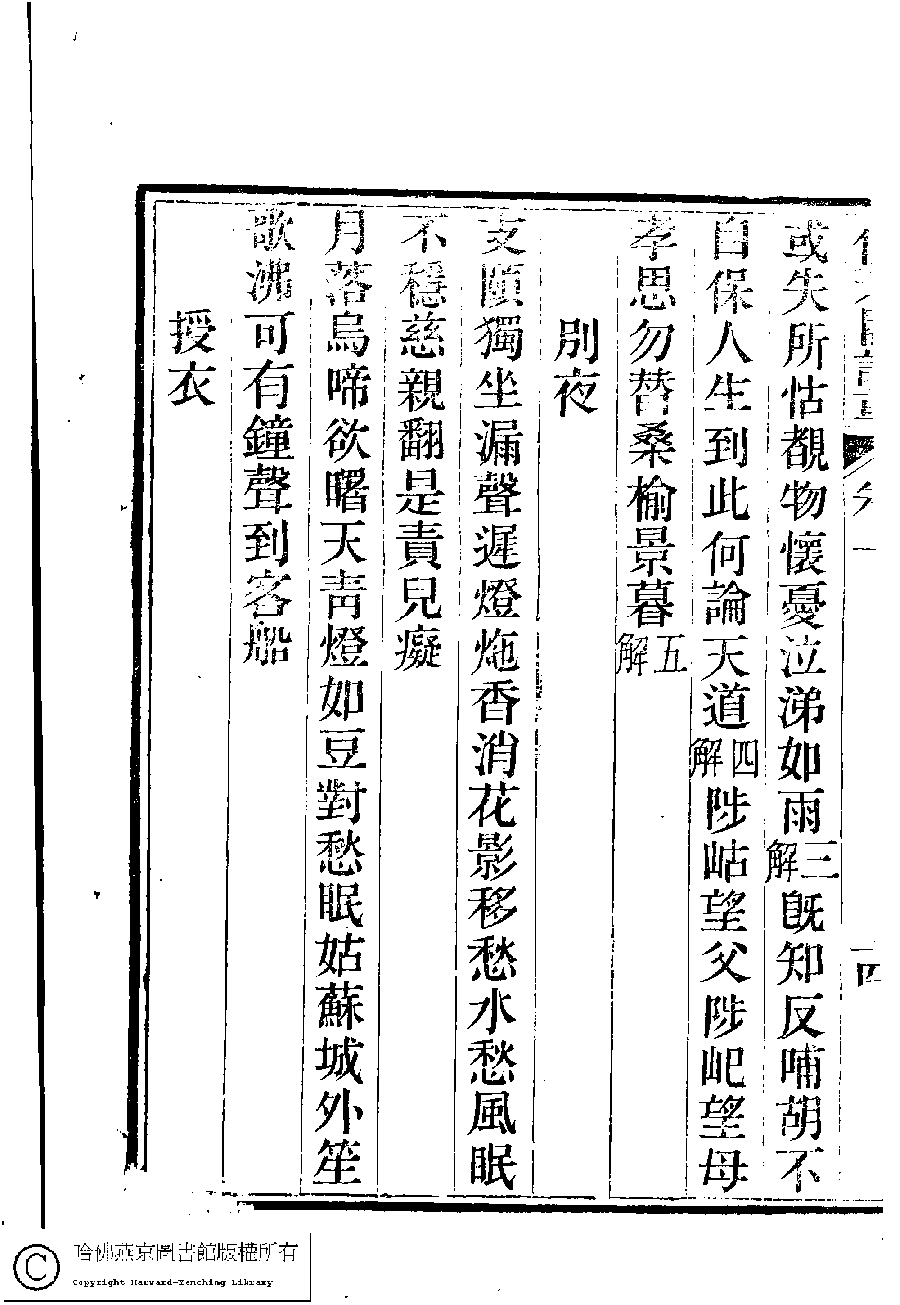 或失所怙覩物懷憂泣涕如雨三解既知反哺胡不
自保人生到此何論天道四解陟岵望父陟屺望母
孝思勿替桑榆景暮五解
別夜
支頤獨坐漏聲遲燈灺香消花影移愁水愁風眠
不穩慈親翻是責兒癡
月落烏啼欲曙天靑燈如豆對愁眠姑蘇城外笙
歌沸可有鐘聲到客船
授衣
哈佛燕京圖書館版權所有
Copyright Harvard-Yenching Library